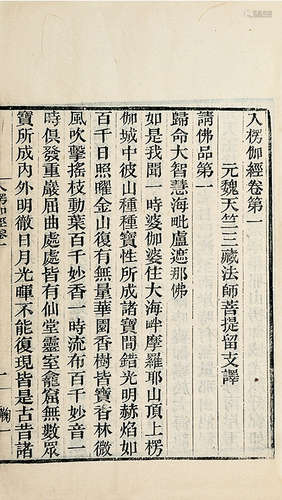 入楞伽經卷第一
元魏天竺三藏法師菩提留支譯
請佛品第一
歸命大智慧海毗盧遮那佛
如是我聞一時婆伽婆住大海畔摩羅耶山頂上楞
伽城中彼山種種寶性所成諸寶間錯光明赫焰如
百千日照曜金山復有無量華園香樹皆寶香林微
風吹擊搖枝動葉百千妙香一時流布百千妙音一
時俱發重巖屈曲處處皆有仙堂靈室龕窟無數眾
寶所成內外明徹日月光暉不能復現皆是古昔諸